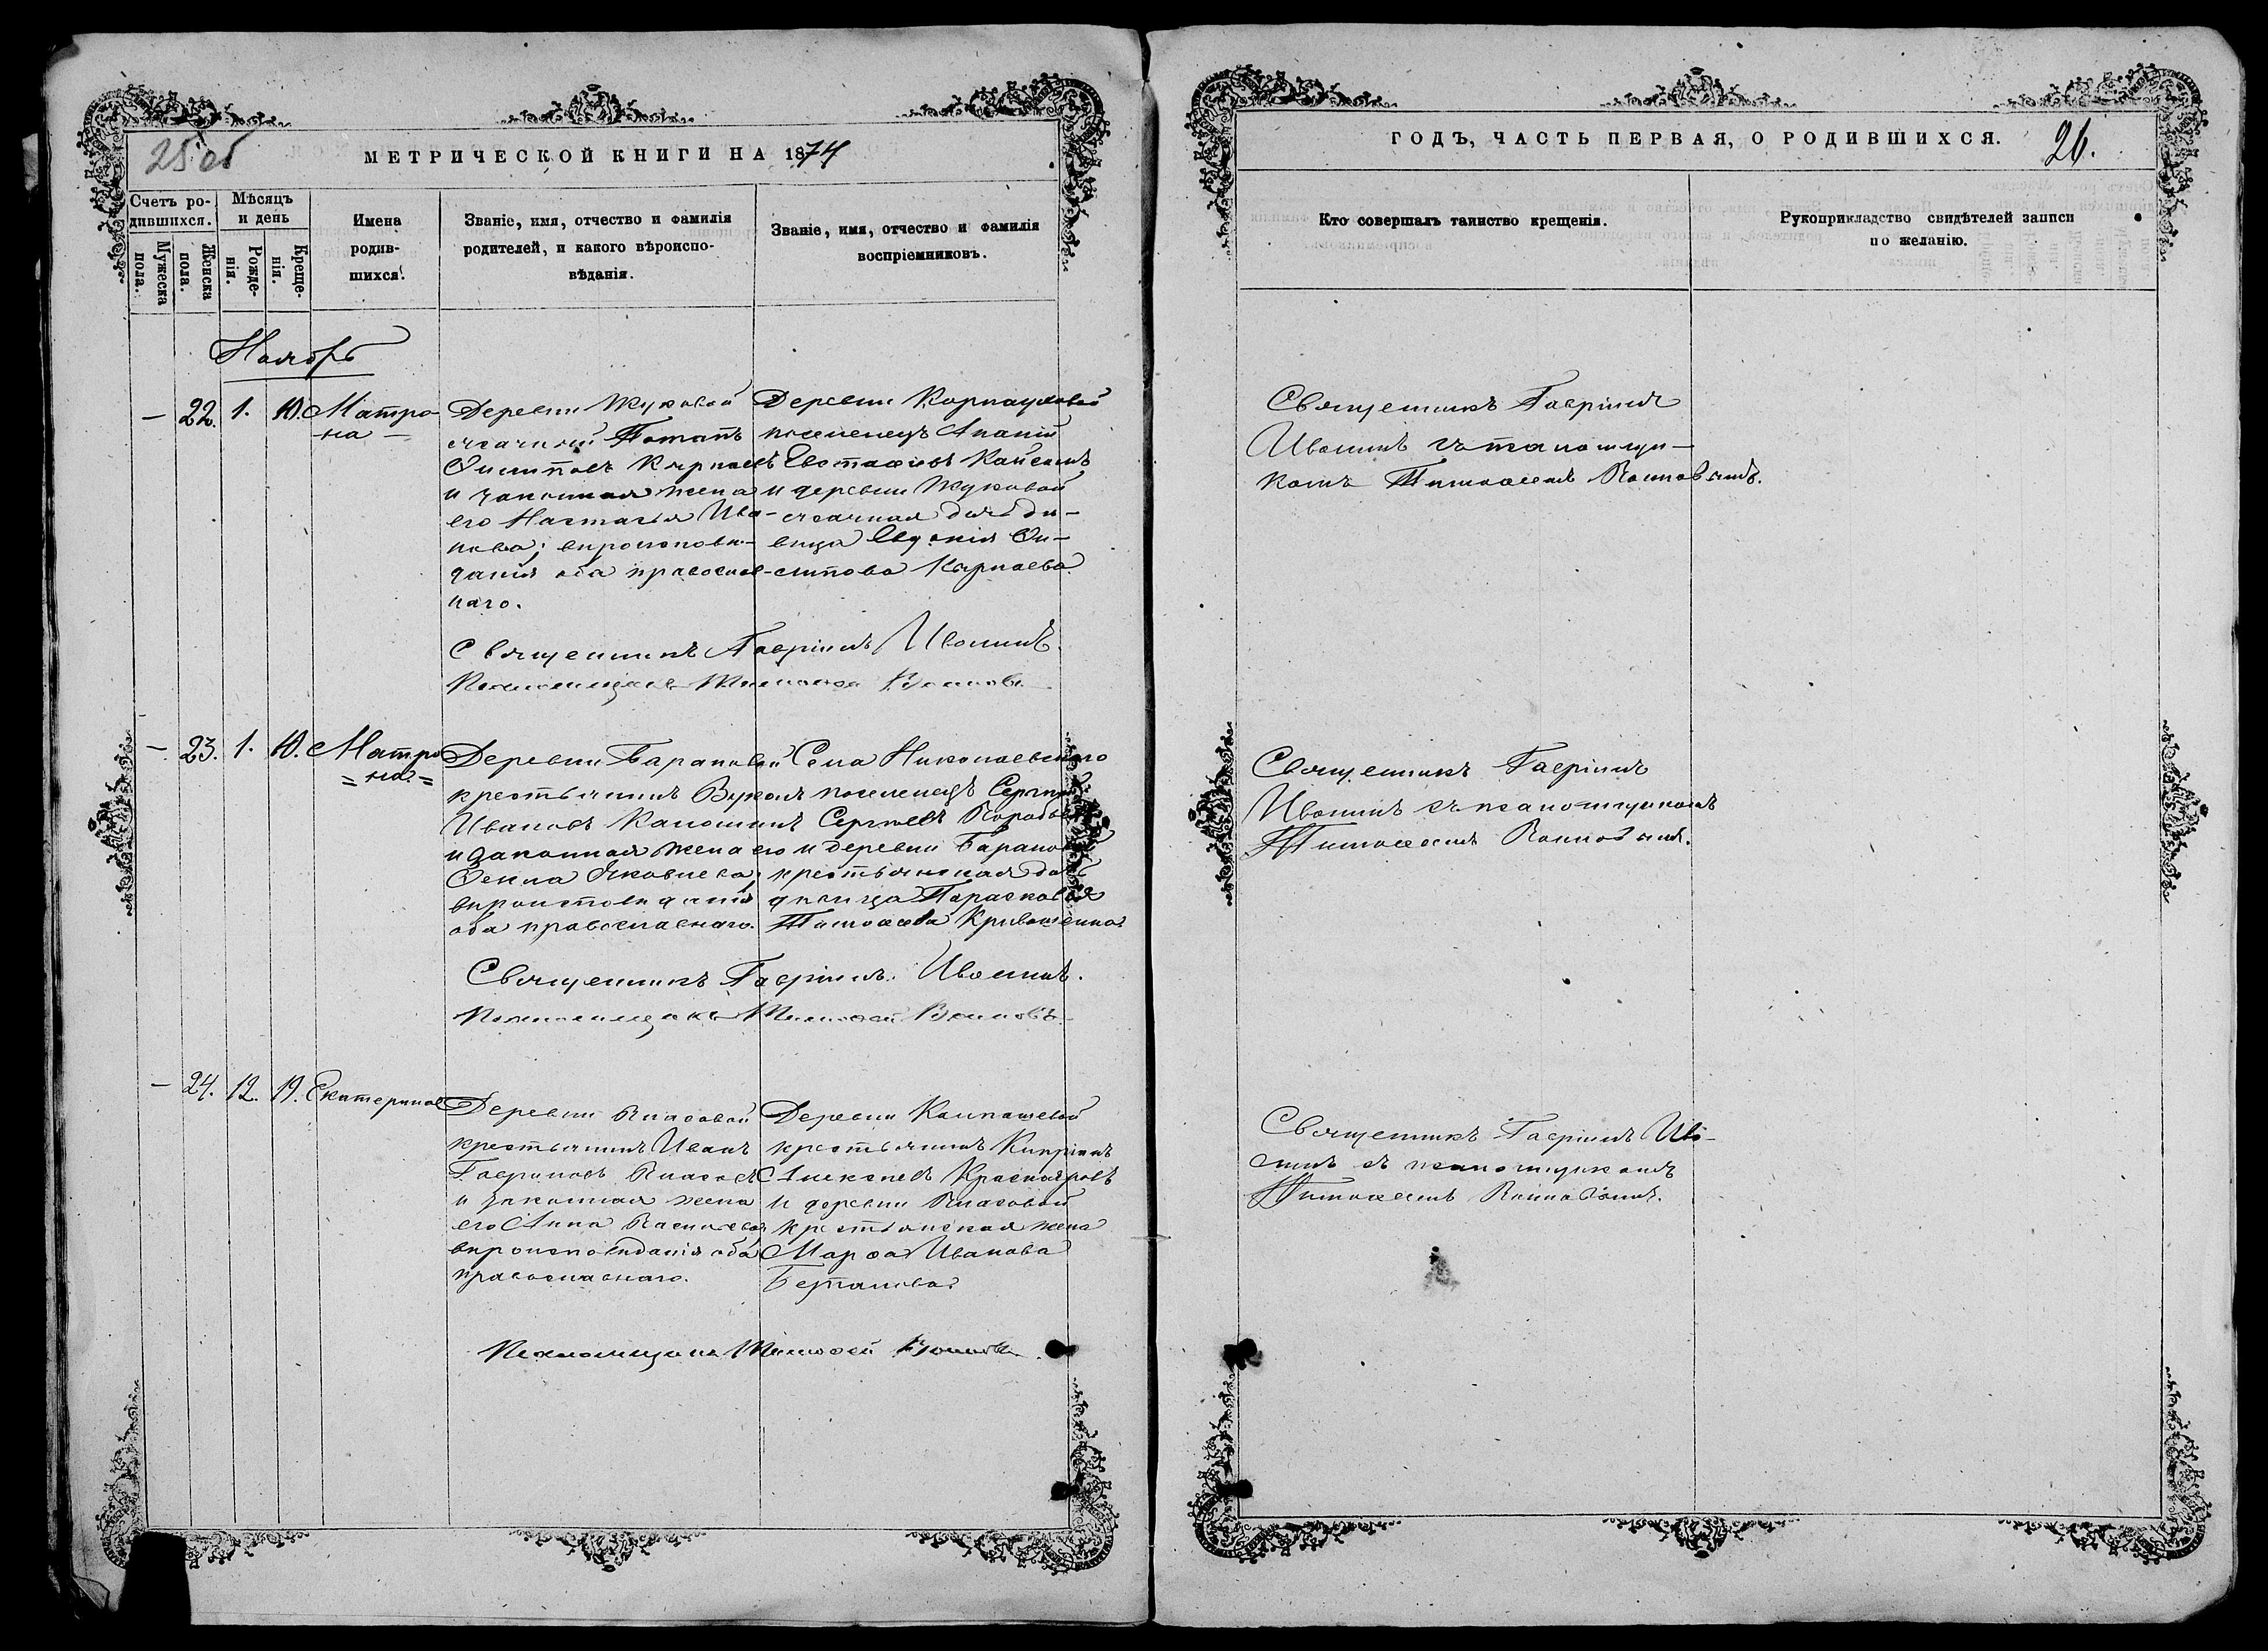 25 об
МЕТРИЧЕСКОЙ КНИГИ НА 1874
Счетъ ро-
дившихся.
Мужеска
пола.
Женска
пола.
Мѣсяцъ
и день
Рожде-
нія.
Креще-
нія.
Имена
родив-
шихся.
Званіе, имя, отчество и фамилія
родителей, и какого вѣроиспо-
вѣданія.
Званіе, имя, отчество и фамилія
воспріемниковъ.
Ноябрь
— 22. 1. 10. Матро-
на —
Деревни Жуковой
ясачный Потапъ
и законная жена
его Настасья Ива-
нова; вѣроисповѣ-
данія оба православ-
наго.
поселенецъ Ананій
и деревни Жуковой
ясачная дочь дѣ-
вица
Священникъ Гавріилъ Ивошинъ.
Тимофей
— 23. 1. 10. Матро
= на =
Деревни Барановой
крестьянинъ Вуколъ
Ивановъ Калошинъ
и законная жена его
Фекла Яковлева,
вѣроисповѣданія
оба православнаго.
Села Николаевского
поселенецъ Сергѣй
Сергѣевъ
и деревни Барановой
крестьянская дочь
дѣвица Парасковья
Тимофеева
Священникъ Гавріилъ Ивошинъ.
Тимофей
— 24. 12. 19. Екатерина
Деревни Власовой
крестьянинъ Иванъ
Гавриловъ Власовъ
и законная жена
его Анна Васильева
вѣроисповѣданія оба
православнаго.
Деревни Колпашевой
крестьянинъ Кипріанъ
Алексѣевъ Краснояровъ
и деревни Власовой
крестьянская жена
Марфа Иванова
Тимофей
ГОДЪ, ЧАСТЬ ПЕРВАЯ, О РОДИВШИХСЯ.
26.
Кто совершалъ таинство крещенія.
Рукоприкладство свидѣтелей записи
по желанію.
Священникъ Гавріилъ
Ивошинъ съ паномщи-
комъ Тимофеемъ
Священникъ Гавріилъ
Ивошинъ съ паномщикомъ
Тимофеемъ
Священникъ Гавріилъ Иво-
шинъ съ паномщикомъ
Тимофеемъ